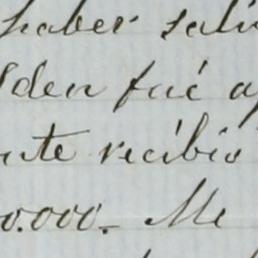 haber sali
lden fué a
nte recibió
0.000. Me